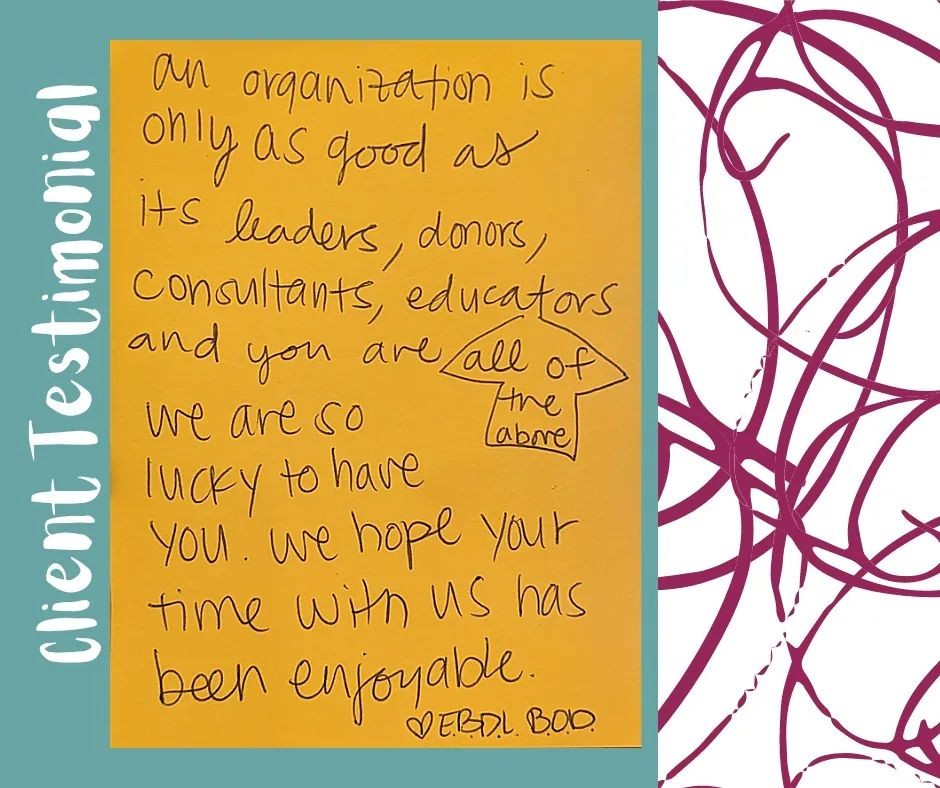 Client Testimonial
an organization is
only as good as
its leaders, donors,
consultants, educators
and you are all of
the
above
we are so
lucky to have
you. we hope your
time with us has
been enjoyable.
♡ E.B.D.L. B.O.D.